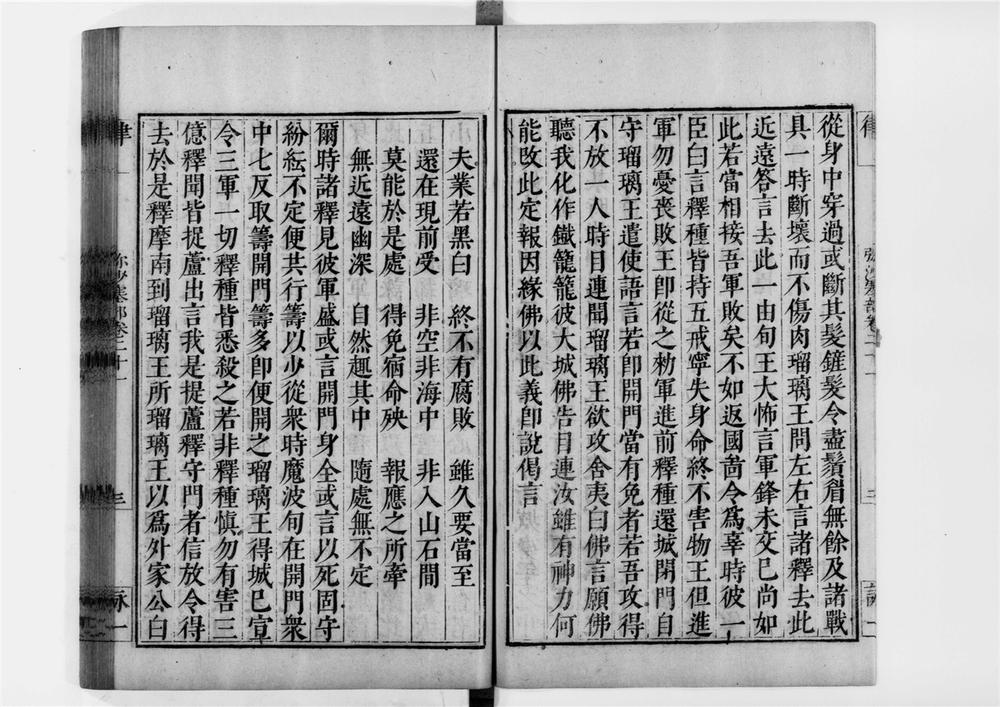 從身中穿過或斷其髮鏟髮令盡鬚眉無餘及諸戰
具一時斷壞而不傷肉瑠璃王問左右言諸釋去此
近遠答言去此一由旬王大怖言軍鋒未交已尚如
此若當相接吾軍敗矣不如返國啚令爲辜時彼一
臣白言釋種皆持五戒寧失身命終不害物王但進
軍勿憂喪敗王卽從之勑軍進前釋種還城閉門自
守瑠璃王遣使語言若卽開門當有免者若吾攻得
不放一人時目連聞瑠璃王欲攻舍夷白佛言願佛
聽我化作鐵籠籠彼大城佛告目連汝雖有神力何
能改此定報因緣佛以此義卽說偈言
夫業若黑白　終不有腐敗　雖久要當至
還在現前受　非空非海中　非入山石間
莫能於是處　得免宿命殃　報應之所牽
無近遠幽深　自然趣其中　隨處無不定
爾時諸釋見彼軍盛或言開門身全或言以死固守
紛紜不定便共行籌以少從衆時魔波旬在開門衆
中七反取籌開門籌多卽便開之瑠璃王得城已宣
令三軍一切釋種皆悉殺之若非釋種愼勿有害三
億釋聞皆捉蘆出言我是捉蘆釋守門者信放令得
去於是釋摩南到瑠璃王所瑠璃王以爲外家公白
律
弥沙塞部卷二十一
三
詠一